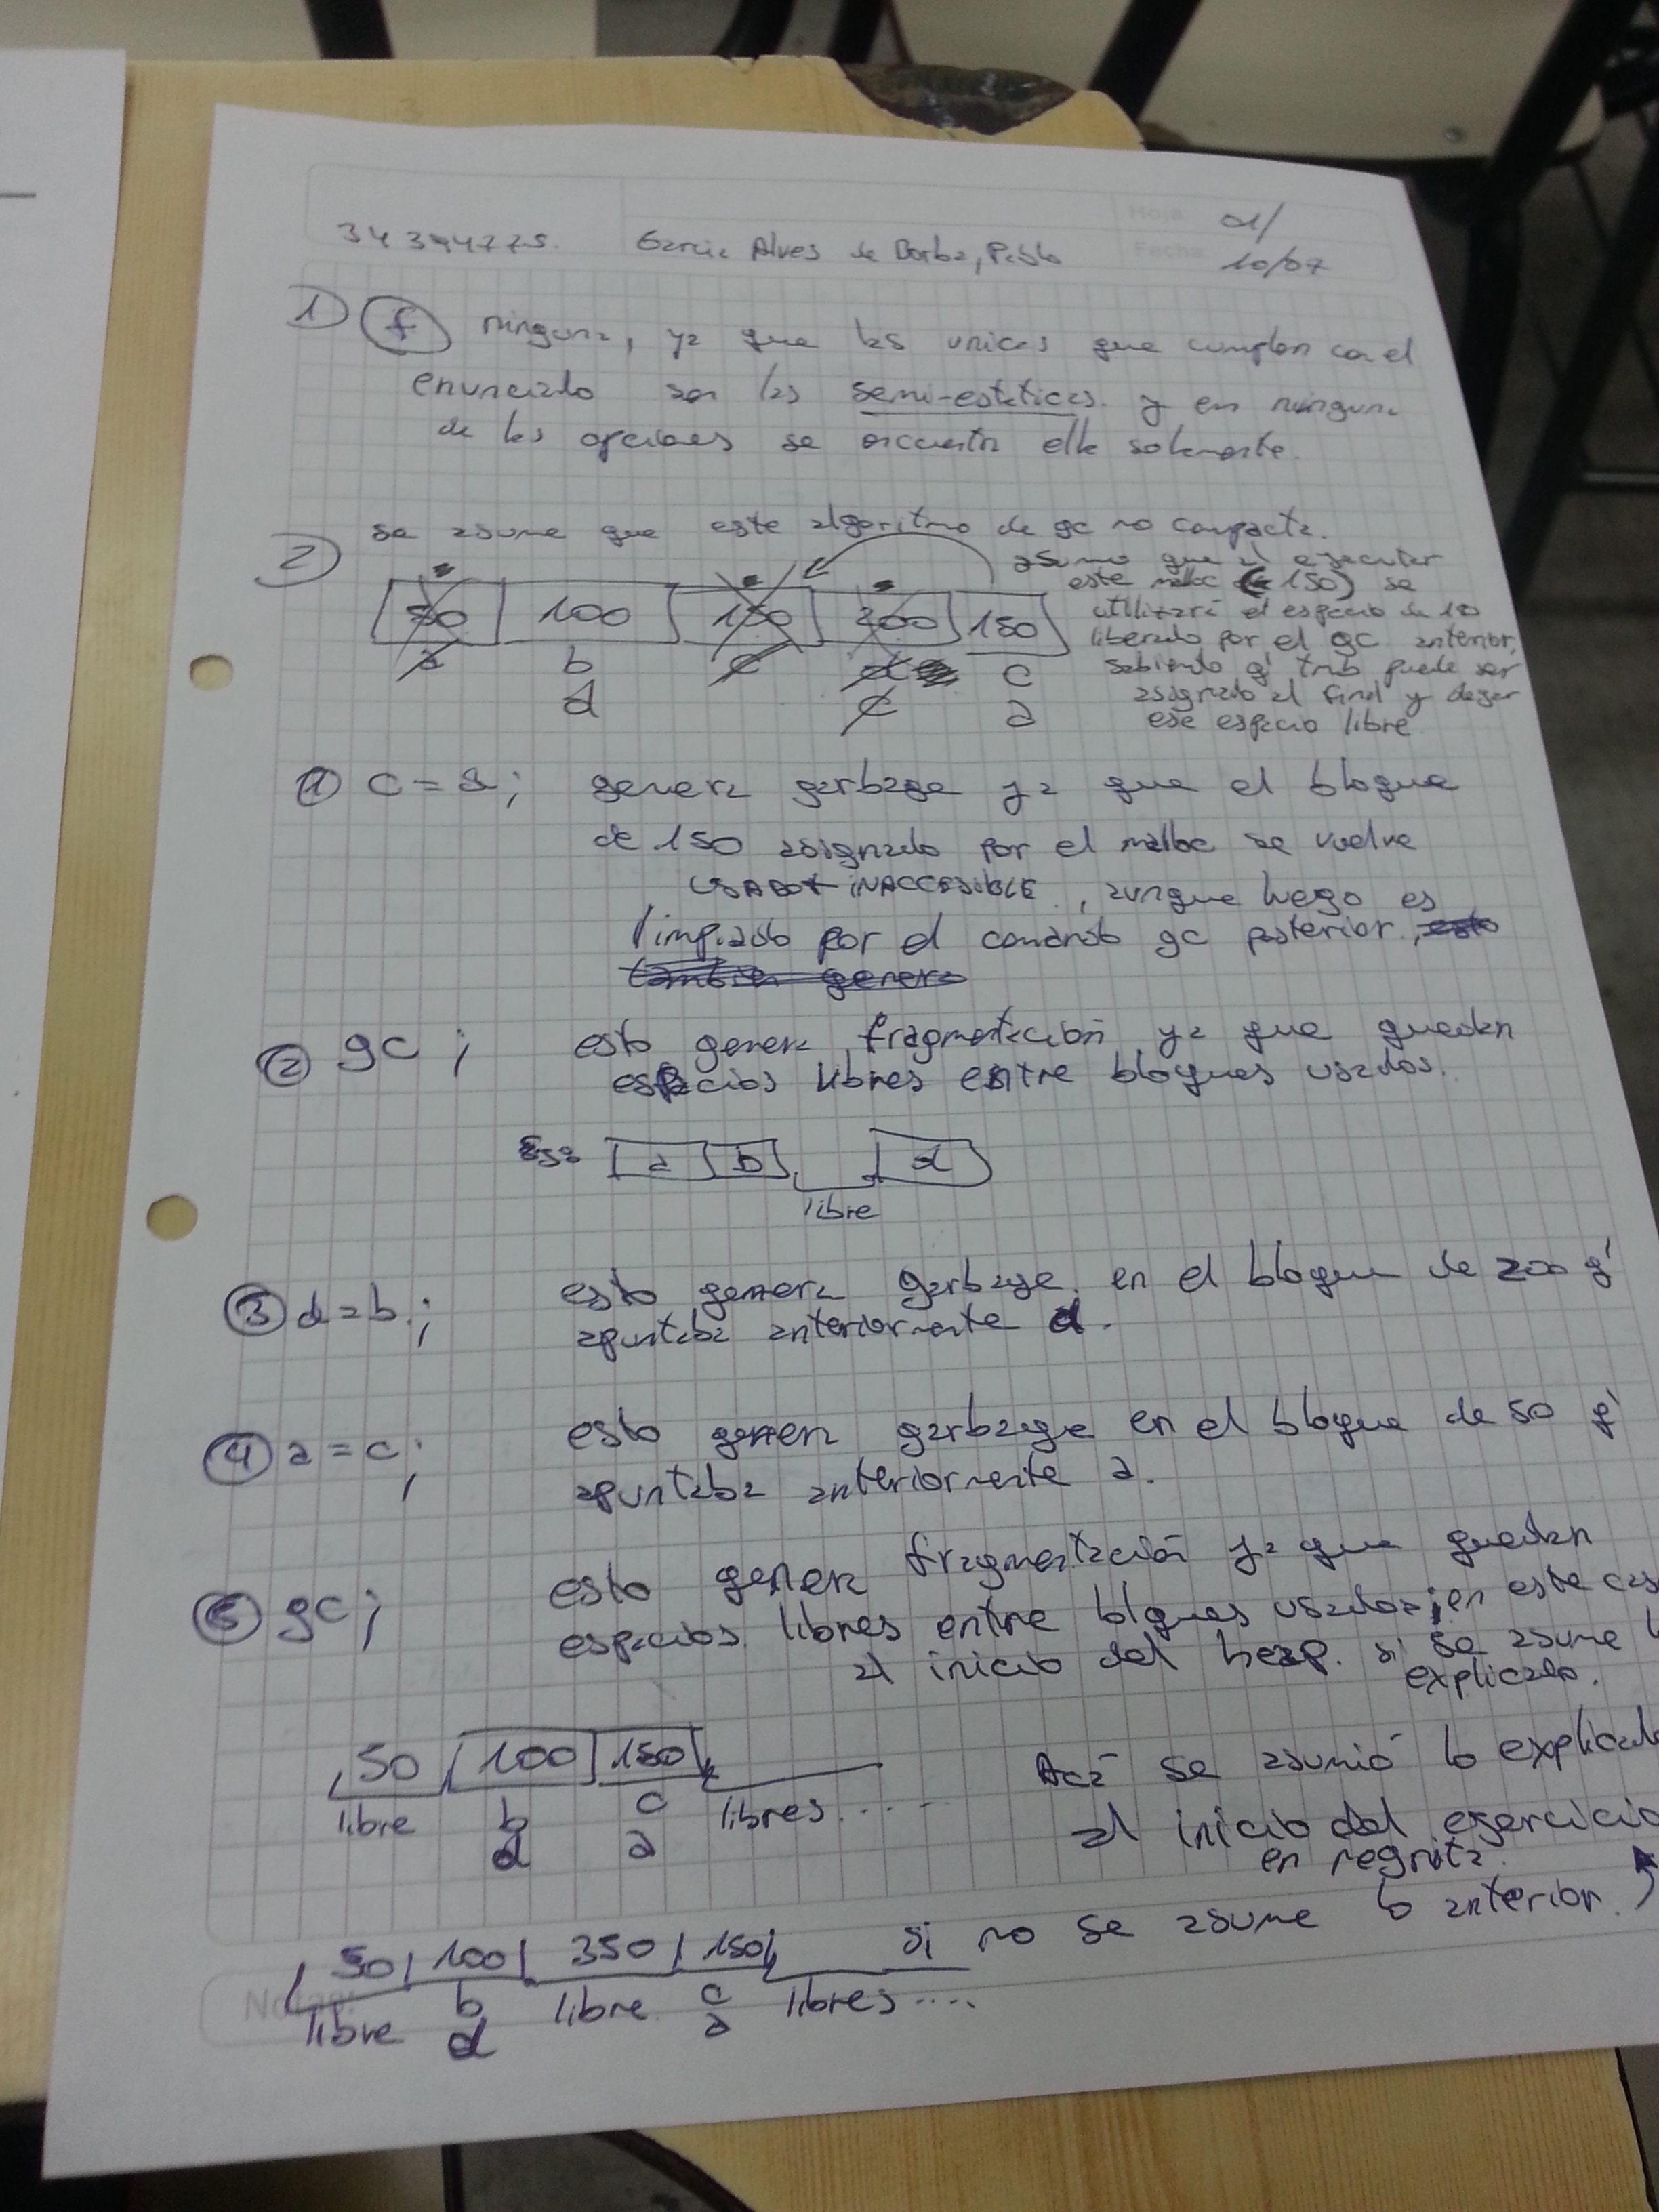 Hoja 01/
34394775. Garcia Alves de Borba, Pablo Fecha 10/07
1) f ninguna, ya que las unicas que cumplen con el
enunciado son las semi-estaticas y en ninguna
de las opciones se encuentra ella solamente.
se asume que este algoritmo de gc no compacta.
2) 50 100 150 200 150
a b c d c
d c a
asumo que al ejecutar
este malloc (150) se
utilizará el espacio de 150
liberado por el gc anterior,
sabiendo q' tmb puede ser
asignado al final y dejar
ese espacio libre
1 c = a; genera garbage ya que el bloque
de 150 asignado por el malloc se vuelve
USADO + INACCESIBLE, aunque luego es
limpiado por el comando gc posterior, esto
tambien genera
2 gc; esto genera fragmentación ya que quedan
espacios libres entre bloques usados.
a b d
libre
3 d=b; esto genera garbage en el bloque de 200 q'
apuntaba anteriormente d.
4 a=c; esto genera garbage en el bloque de 50 q'
apuntaba anteriormente a.
5 gc; esto genera fragmentación ya que quedan
espacios libres entre bloques usados; en este
al inicio del heap. si se asume
explicado.
50 100 150
libre b c libres....
d a
Acá se asumió lo
al inicio del ejercicio
en negrita.
50 100 350 150 si no se asume lo anterior.
libre b libre c libres....
d a
Notas: